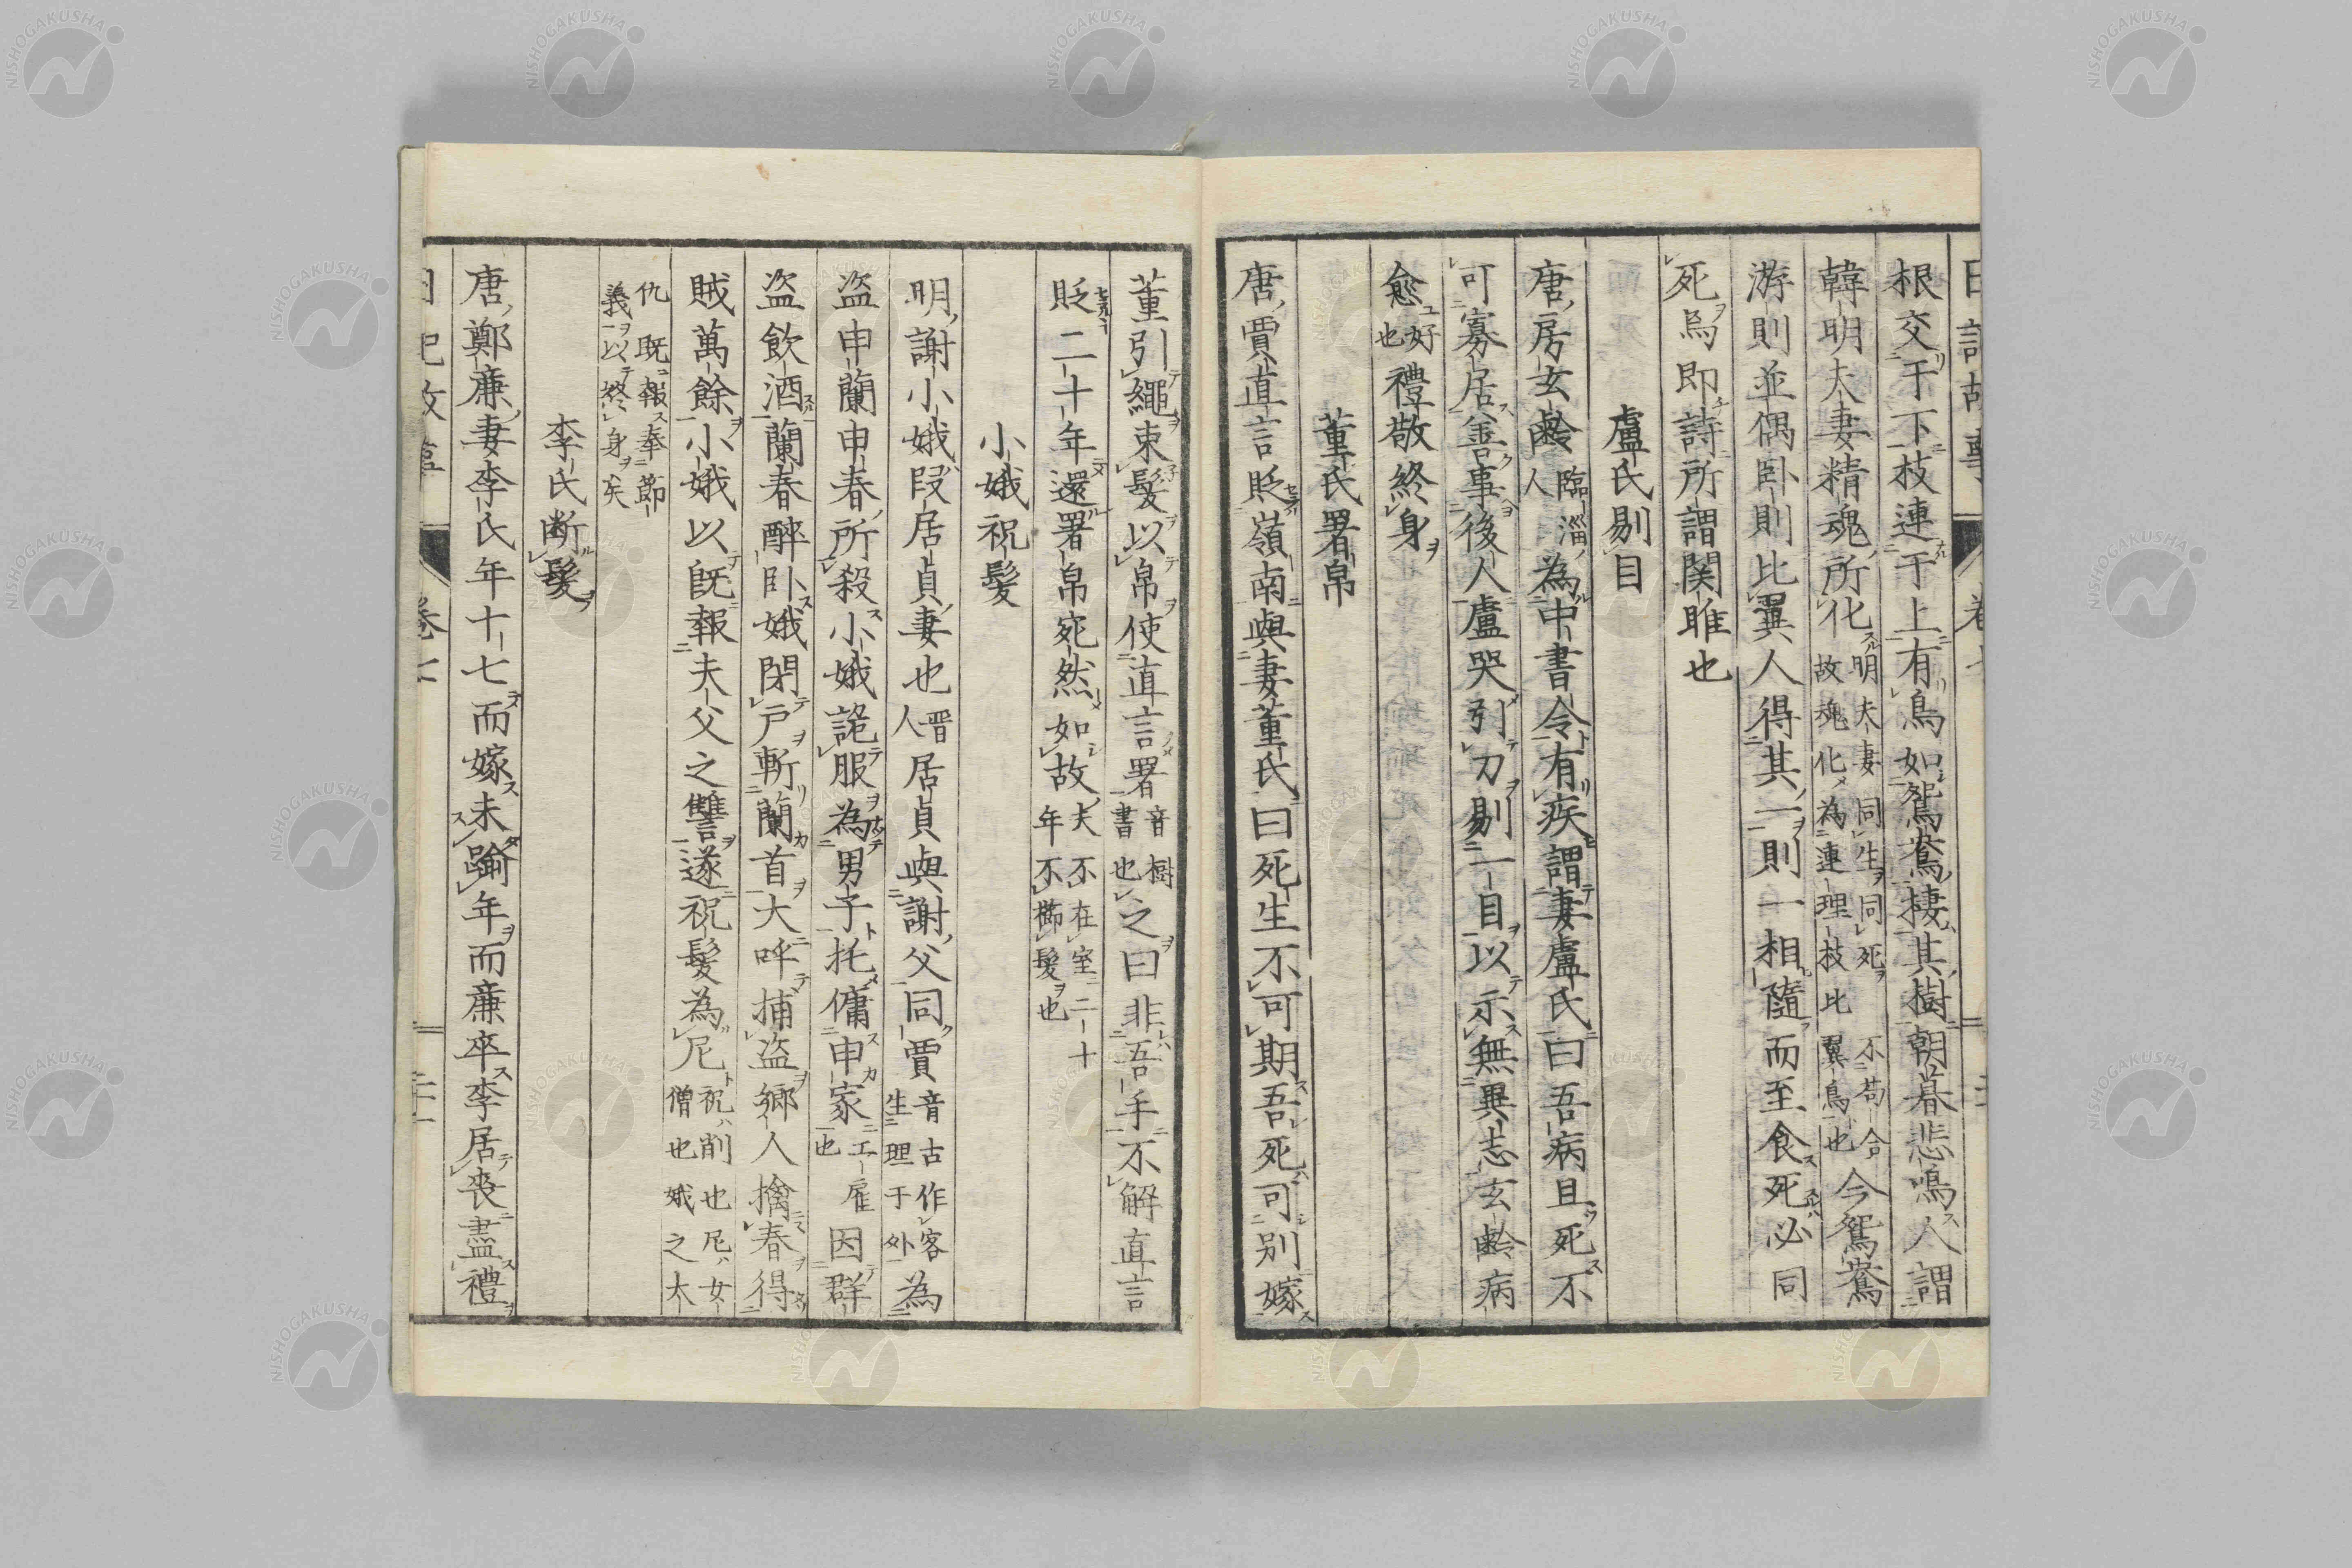 根交于下枝連于上有鳥如鴛鴦棲其樹朝暮悲鳴人謂
韓明夫妻精魂所化明夫妻同生同死不苟合故魂化為連理枝比翼鳥也今鴛鴦
游則並偶卧則比翼人得其一則一相隨而至食死必同
死烏即詩所謂関雎也
盧氏剔目
唐房玄齡臨淄人為中書令有疾謂妻盧氏曰吾病且死不
可寡居善事後人盧哭引刀剔一目以示無異志玄齡病
愈好也禮敬終身
董氏署帛
唐賈直言貶嶺南與妻董氏曰死生不可期吾死可别嫁
董引繩束髮以帛使直言署音樹書也之曰非吾手不解直言
貶二十年還署帛宛然如故夫不在室二十年不櫛髮也
小娥祝髪
明謝小娥段居貞妻也晋人居貞與謝父同賈音古作客生理于外為
盗申蘭申春所殺小娥詭服為男子托傭申家工雇也因群
盗飲酒蘭春醉卧娥閉戸斬蘭首大呼捕盗鄉人擒春得
賊萬餘小娥以既報夫父之讐遂祝髪為尼祝削也尼女僧也娥之太
仇既報奉節義以終身矣
李氏断髪
唐鄭廉妻李氏年十七而嫁未踰年而廉卒李居喪盡禮